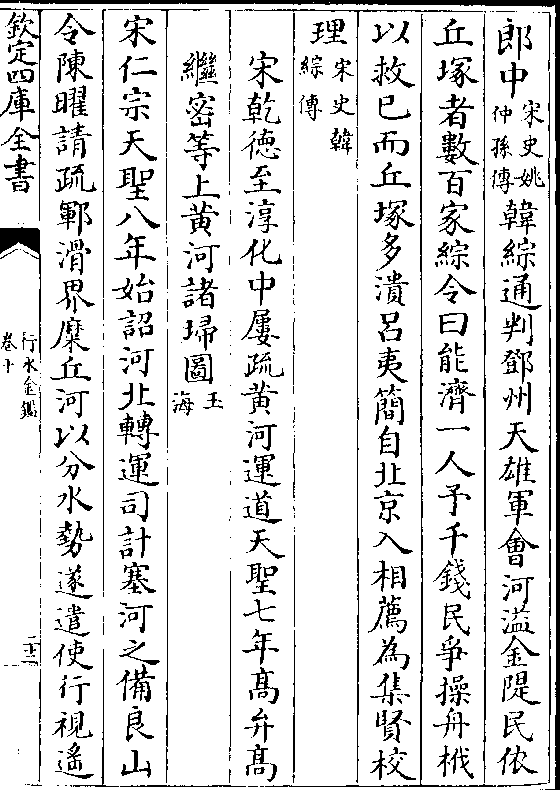 郎中宋史姚仲孫傳韓綜通判鄧州天雄軍會河溢金隄民依
丘塚者數百家綜令曰能濟一人予千錢民爭操舟栰
以救已而丘塚多潰呂夷簡自北京入相薦為集賢校
理宋史韓綜傳
宋乾德至淳化中屢疏黃河運道天聖七年髙弁髙
繼密等上黃河諸埽圖玉海
宋仁宗天聖八年始詔河北轉運司計塞河之備良山
令陳曜請疏鄆滑界糜丘河以分水勢遂遣使行視遙
欽定四庫全書
行水金鑑
卷十
二十二